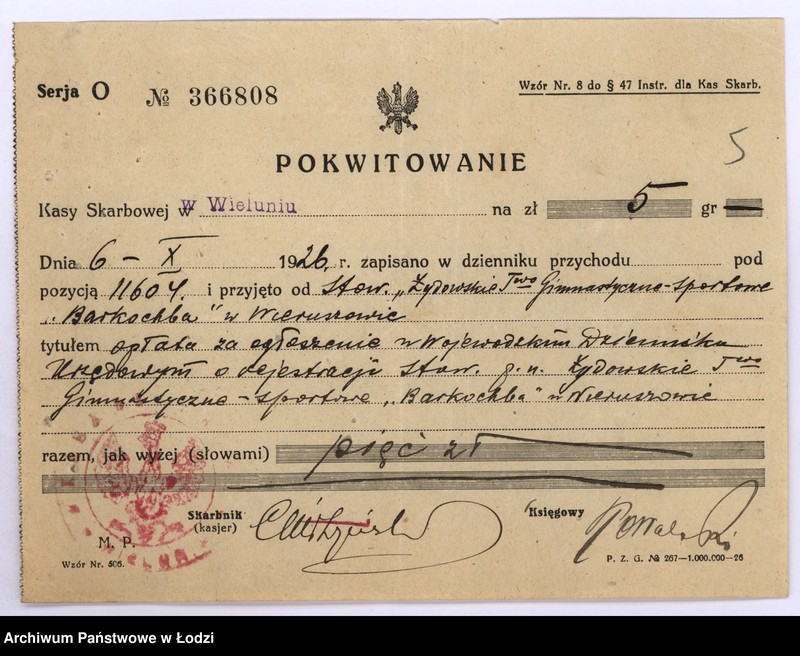 Serja O № 366808
Wzór Nr. 8 do § 47 Instr. dla Kas Skarb.
5
POKWITOWANIE
Kasy Skarbowej w w Wieluniu na zł 5 gr —
Dnia 6 – X 1926, r. zapisano w dzienniku przychodu pod
pozycją 11604. i przyjęto od Stow. „Żydowskie Two Gimnastyczno-sportowe
„Barkochba" w Wieruszowie
tytułem opłata za ogłoszenie w Wojewódzkim Dzienniku
Urzędowym o rejestracji Stow. p. n. Żydowskie Two
Gimnastyczno-sportowe „Barkochba" w Wieruszowie
razem, jak wyżej (słowami) pięć zł
Skarbnik
(kasjer)
Księgowy
M. P.
Wzór Nr. 506.
P. Z. G. № 267—1.000.000—26
Archiwum Państwowe w Łodzi